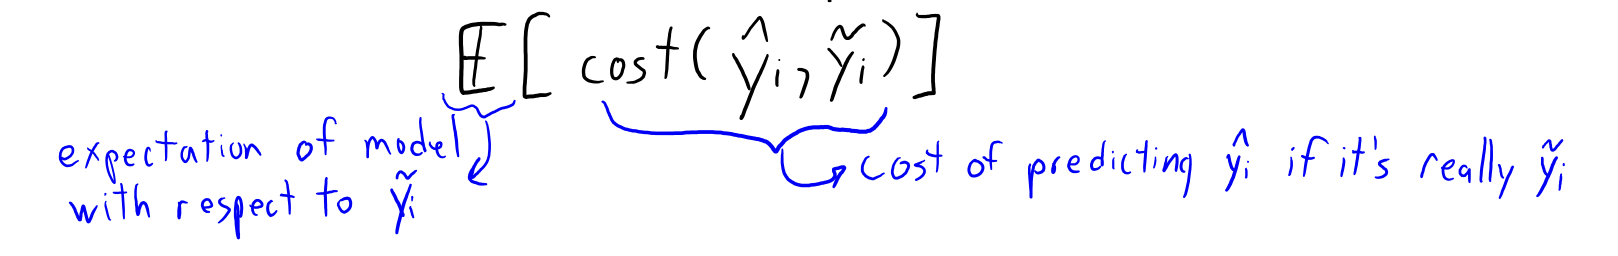 𝔼[cost(ŷᵢ, ỹᵢ)]
expectation of model
with respect to ỹᵢ
cost of predicting ŷᵢ if it's really ỹᵢ